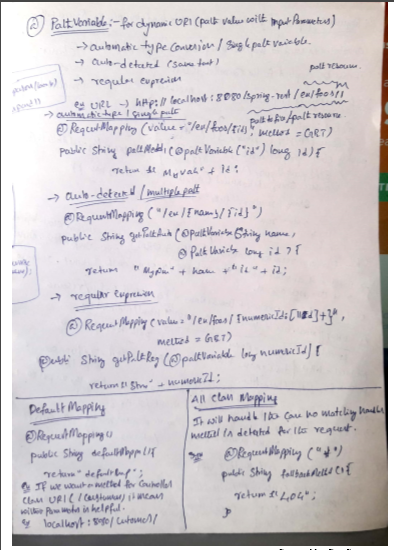 ② Path Variable :- for dynamic URI (path value with Input Parameters)
→ automatic type conversion / Single path variable.
→ auto-detected (same text)
→ regular expression
path resource.
eg URL → http://localhost:8080/spring-rest/en/foos/1
→ automatic type / single path
path to foo/path resource.
@RequestMapping (value = "/en/foos/{id}" method = GET)
public String pathMethod (@pathVariable ("id") long id) {
return "My vat" + id;
→ auto-detected / multiple path
@RequestMapping ("/en/{name}/{id}")
public String getPathAuto (@pathVariable String name,
@PathVariable long id) {
return "My Pin" + nam + "Id" + id;
→ regular expression
@RequestMapping (value = "/en/foos/{numericId:[\\d]+}",
method = GET)
public String getPathReg (@pathVariable long numericId) {
return " " + numericId;
Default Mapping
@RequestMapping ()
public String defaultMapp() {
return "default";
eg If we want a method for Controller
class URI (/customer) it means
without parameter is helpful.
eg localhost:8080/customer/
All Class Mapping
It will handle like can no matching handler
method is detected for the request.
@RequestMapping ("*")
public String fallbackMethod () {
return "404";
}